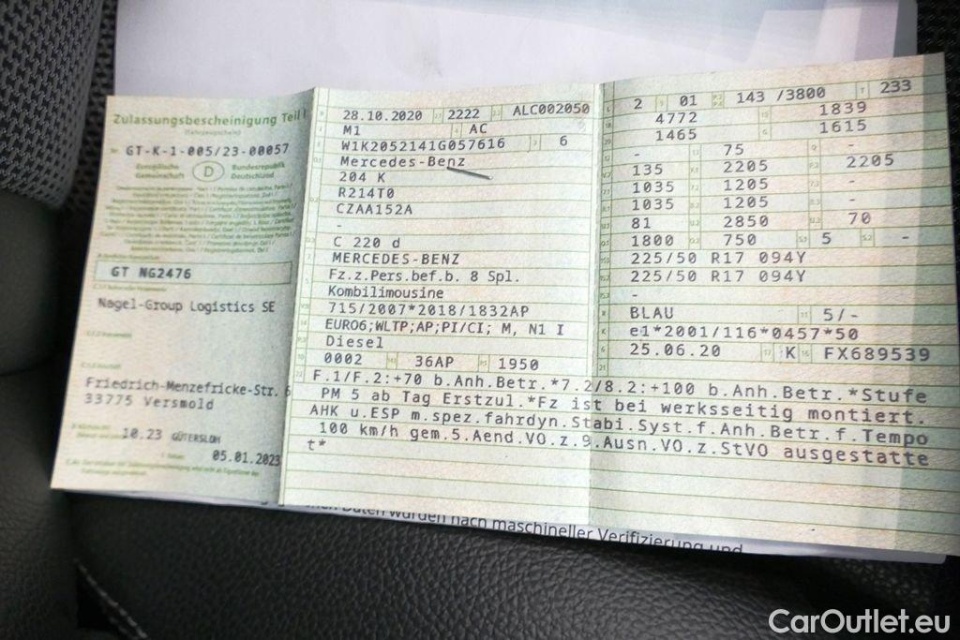 Zulassungsbescheinigung Teil I
(Fahrzeugschein)
Nr. GT-K-1-005/23-00057
Europäische Gemeinschaft
D
Bundesrepublik Deutschland
GT NG2476
Nagel-Group Logistics SE
Friedrich-Menzefricke-Str. 6
33775 Versmold
10.23 GÜTERSLOH
05.01.2023
28.10.2020 2222 ALC002050
M1 AC
W1K2052141G057616 6
Mercedes-Benz
204 K
R214T0
CZAA152A
-
C 220 d
MERCEDES-BENZ
Fz.z.Pers.bef.b. 8 Spl.
Kombilimousine
715/2007*2018/1832AP
EURO6;WLTP;AP;PI/CI; M, N1 I
Diesel
0002 36AP 1950
2 01 143 /3800 233
4772 1839
1465 1615
- 75 -
135 2205 2205
1035 1205 -
1035 1205 -
81 2850 70
1800 750 5 -
225/50 R17 094Y
225/50 R17 094Y
-
BLAU 5/-
e1*2001/116*0457*50
25.06.20 K FX689539
F.1/F.2:+70 b.Anh.Betr.*7.2/8.2:+100 b.Anh.Betr.*Stufe
PM 5 ab Tag Erstzul.*Fz ist bei werksseitig montiert.
AHK u.ESP m.spez.fahrdyn.Stabi.Syst.f.Anh.Betr.f.Tempo
100 km/h gem.5.Aend.VO.z.9.Ausn.VO.z.StVO ausgestatte
t*
Daten wurden nach maschineller Verifizierung und
CarOutlet.eu